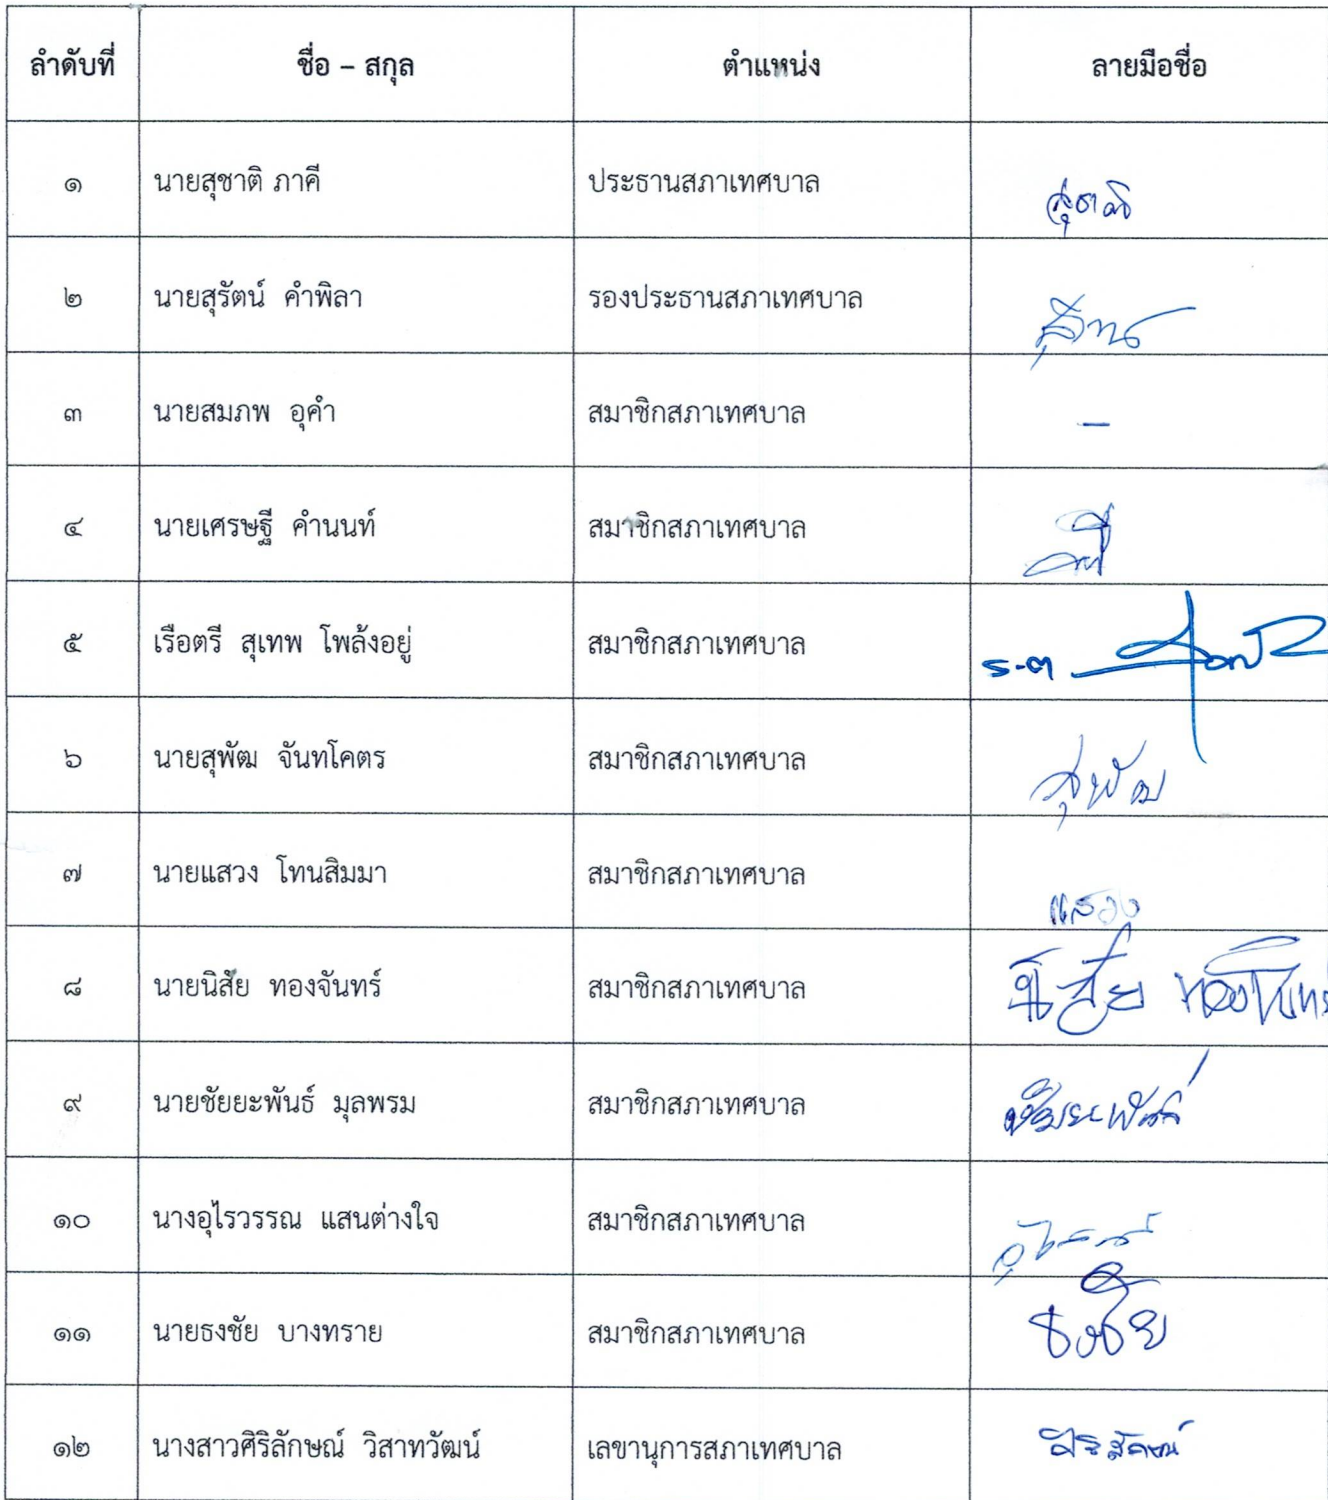 ลำดับที่ ชื่อ – สกุล ตำแหน่ง ลายมือชื่อ
๑ นายสุชาติ ภาคี ประธานสภาเทศบาล สุชาติ
๒ นายสุรัตน์ คำพิลา รองประธานสภาเทศบาล
๓ นายสมภพ อุคำ สมาชิกสภาเทศบาล –
๔ นายเศรษฐี คำนนท์ สมาชิกสภาเทศบาล
๕ เรือตรี สุเทพ โพล้งอยู่ สมาชิกสภาเทศบาล ร.ต
๖ นายสุพัฒ จันทโคตร สมาชิกสภาเทศบาล สุพัฒ
๗ นายแสวง โทนสิมมา สมาชิกสภาเทศบาล แสวง
๘ นายนิสัย ทองจันทร์ สมาชิกสภาเทศบาล นิสัย ทองจันทร์
๙ นายชัยยะพันธ์ มุลพรม สมาชิกสภาเทศบาล ชัยยะพันธ์
๑๐ นางอุไรวรรณ แสนต่างใจ สมาชิกสภาเทศบาล
๑๑ นายธงชัย บางทราย สมาชิกสภาเทศบาล ธงชัย
๑๒ นางสาวศิริลักษณ์ วิสาทวัฒน์ เลขานุการสภาเทศบาล ศิริลักษณ์